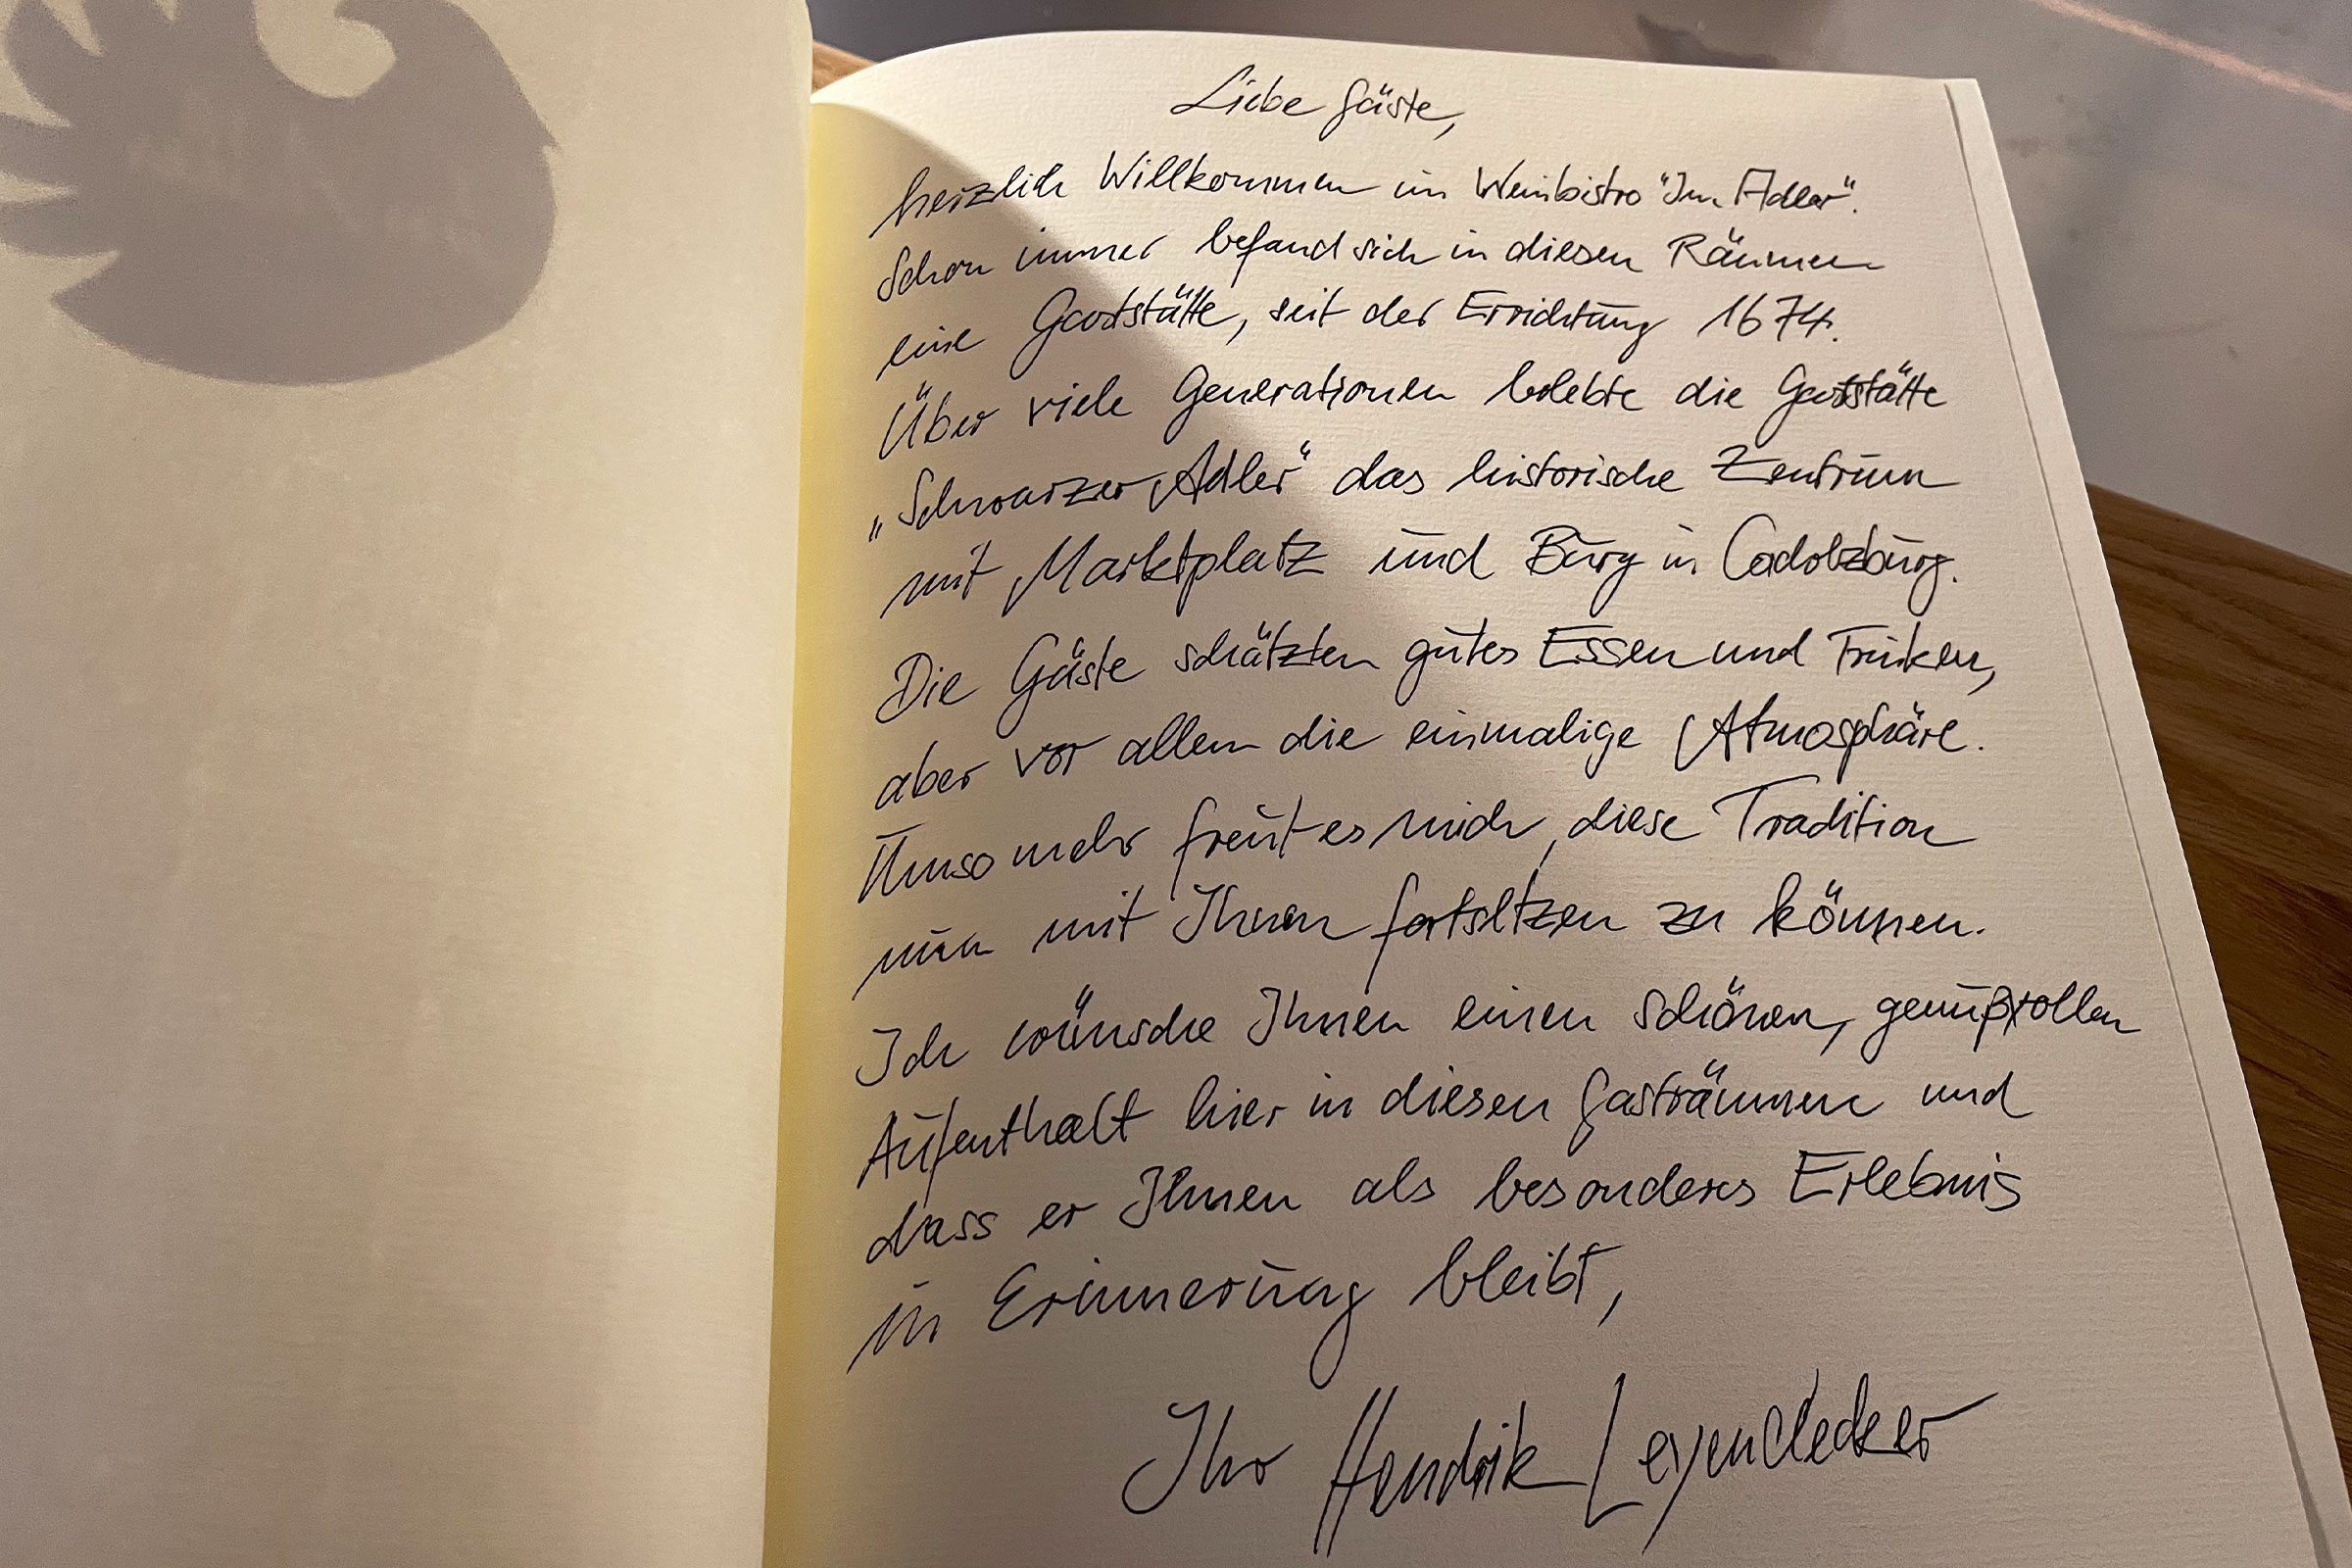 Liebe Gäste,
herzlich Willkommen im Weinbistro "Im Adler".
Schon immer befand sich in diesen Räumen
eine Gaststätte, seit der Errichtung 1674.
Über viele Generationen belebte die Gaststätte
„Schwarzer Adler" das historische Zentrum
mit Marktplatz und Burg in Cadolzburg.
Die Gäste schätzten gutes Essen und Trinken,
aber vor allem die einmalige Atmosphäre.
Umso mehr freut es mich, diese Tradition
nun mit Ihnen fortsetzen zu können.
Ich wünsche Ihnen einen schönen, genußvollen
Aufenthalt hier in diesen Gasträumen und
dass er Ihnen als besonderes Erlebnis
in Erinnerung bleibt,
Ihr Hendrik Leyendecker